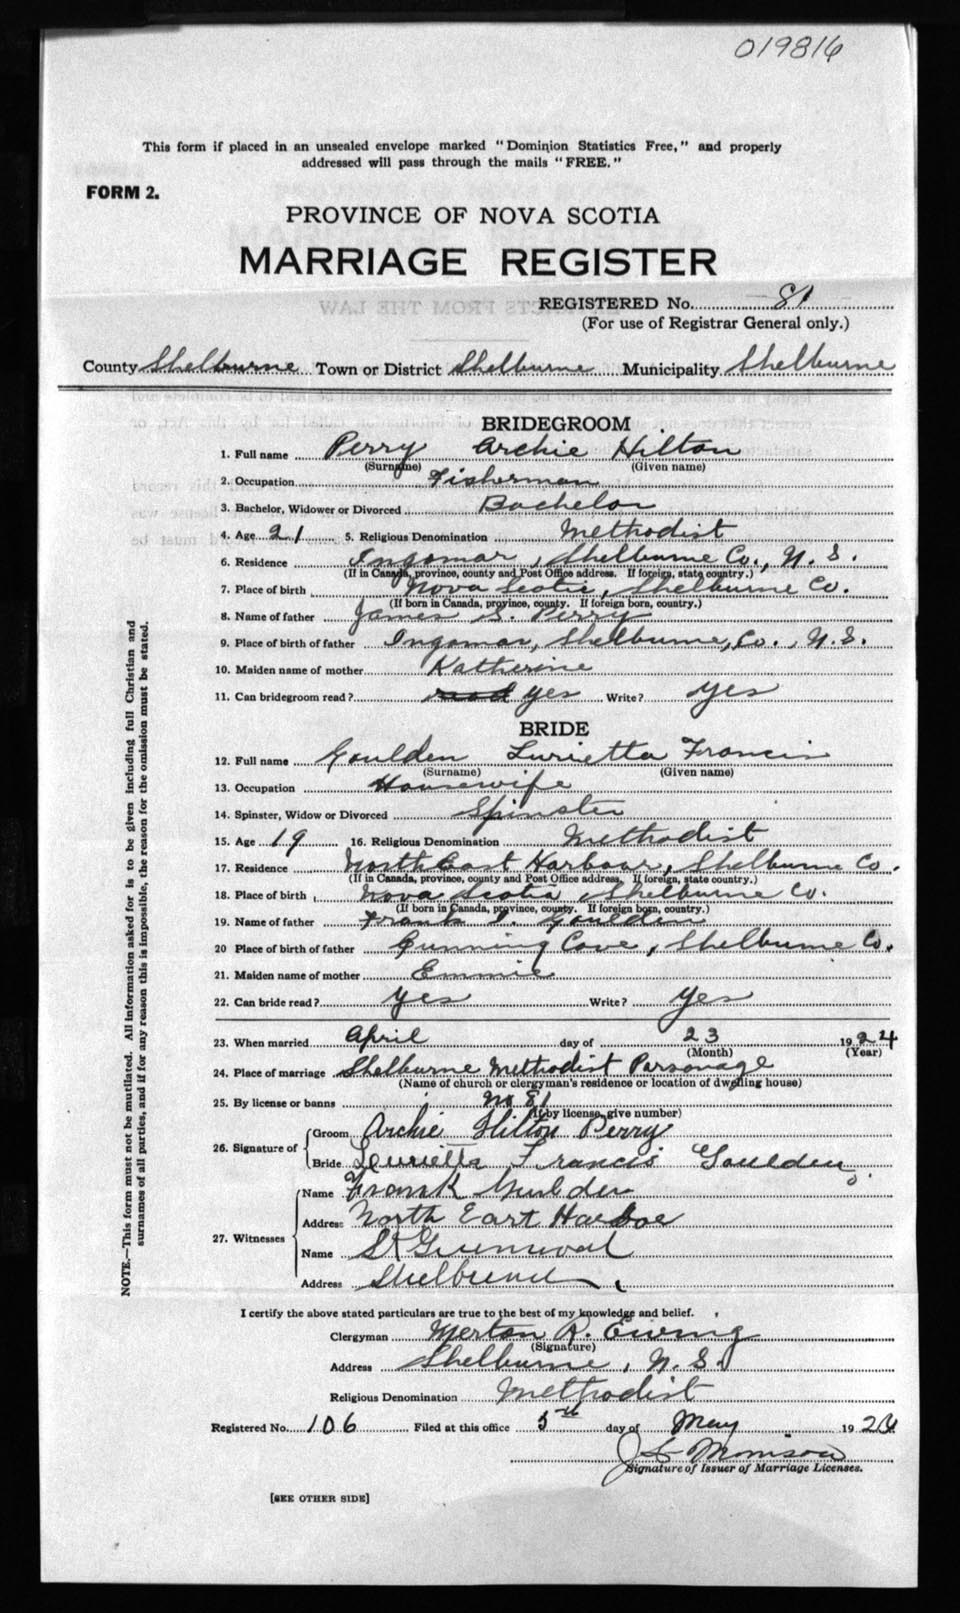 019816
This form if placed in an unsealed envelope marked "Dominion Statistics Free," and properly
addressed will pass through the mails "FREE."
FORM 2.
PROVINCE OF NOVA SCOTIA
MARRIAGE REGISTER
REGISTERED No. 81
(For use of Registrar General only.)
County Shelburne Town or District Shelburne Municipality Shelburne
BRIDEGROOM
1. Full name Perry Archie Hilton
(Surname) (Given name)
2. Occupation Fisherman
3. Bachelor, Widower or Divorced Bachelor
4. Age 21 5. Religious Denomination Methodist
6. Residence Ingomar, Shelburne Co., N. S.
(If in Canada, province, county and Post Office address. If foreign, state country.)
7. Place of birth Nova Scotia, Shelburne Co.
(If born in Canada, province, county. If foreign born, country.)
8. Name of father James S. Perry
9. Place of birth of father Ingomar, Shelburne, Co., N.S.
10. Maiden name of mother Katherine
11. Can bridegroom read? read yes Write? yes
BRIDE
12. Full name Goulden Lurietta Francis
(Surname) (Given name)
13. Occupation Housewife
14. Spinster, Widow or Divorced Spinster
15. Age 19 16. Religious Denomination Methodist
17. Residence North East Harbour, Shelburne Co.
(If in Canada, province, county and Post Office address. If foreign, state country.)
18. Place of birth Nova Scotia Shelburne Co.
(If born in Canada, province, county. If foreign born, country.)
19. Name of father Frank Goulden
20 Place of birth of father Gunning Cove, Shelburne Co.
21. Maiden name of mother Emmie
22. Can bride read? yes Write? yes
23. When married April day of 23 1924
(Month) (Year)
24. Place of marriage Shelburne Methodist Parsonage
(Name of church or clergyman's residence or location of dwelling house)
25. By license or banns No 81
(If by license, give number)
26. Signature of Groom Archie Hilton Perry
Bride Lurietta Francis Goulden
27. Witnesses Name Frank Goulden
Address North East Harboe
Name
Address Shelburne
I certify the above stated particulars are true to the best of my knowledge and belief.
Clergyman Merton R. Ewing
(Signature)
Address Shelburne, N. S.
Religious Denomination Methodist
Registered No. 106 Filed at this office 5th day of May 1924
Morrison
Signature of Issuer of Marriage Licenses.
[SEE OTHER SIDE]
NOTE.—This form must not be mutilated. All information asked for is to be given including full Christian and
surnames of all parties, and if for any reason this is impossible, the reason for the omission must be stated.